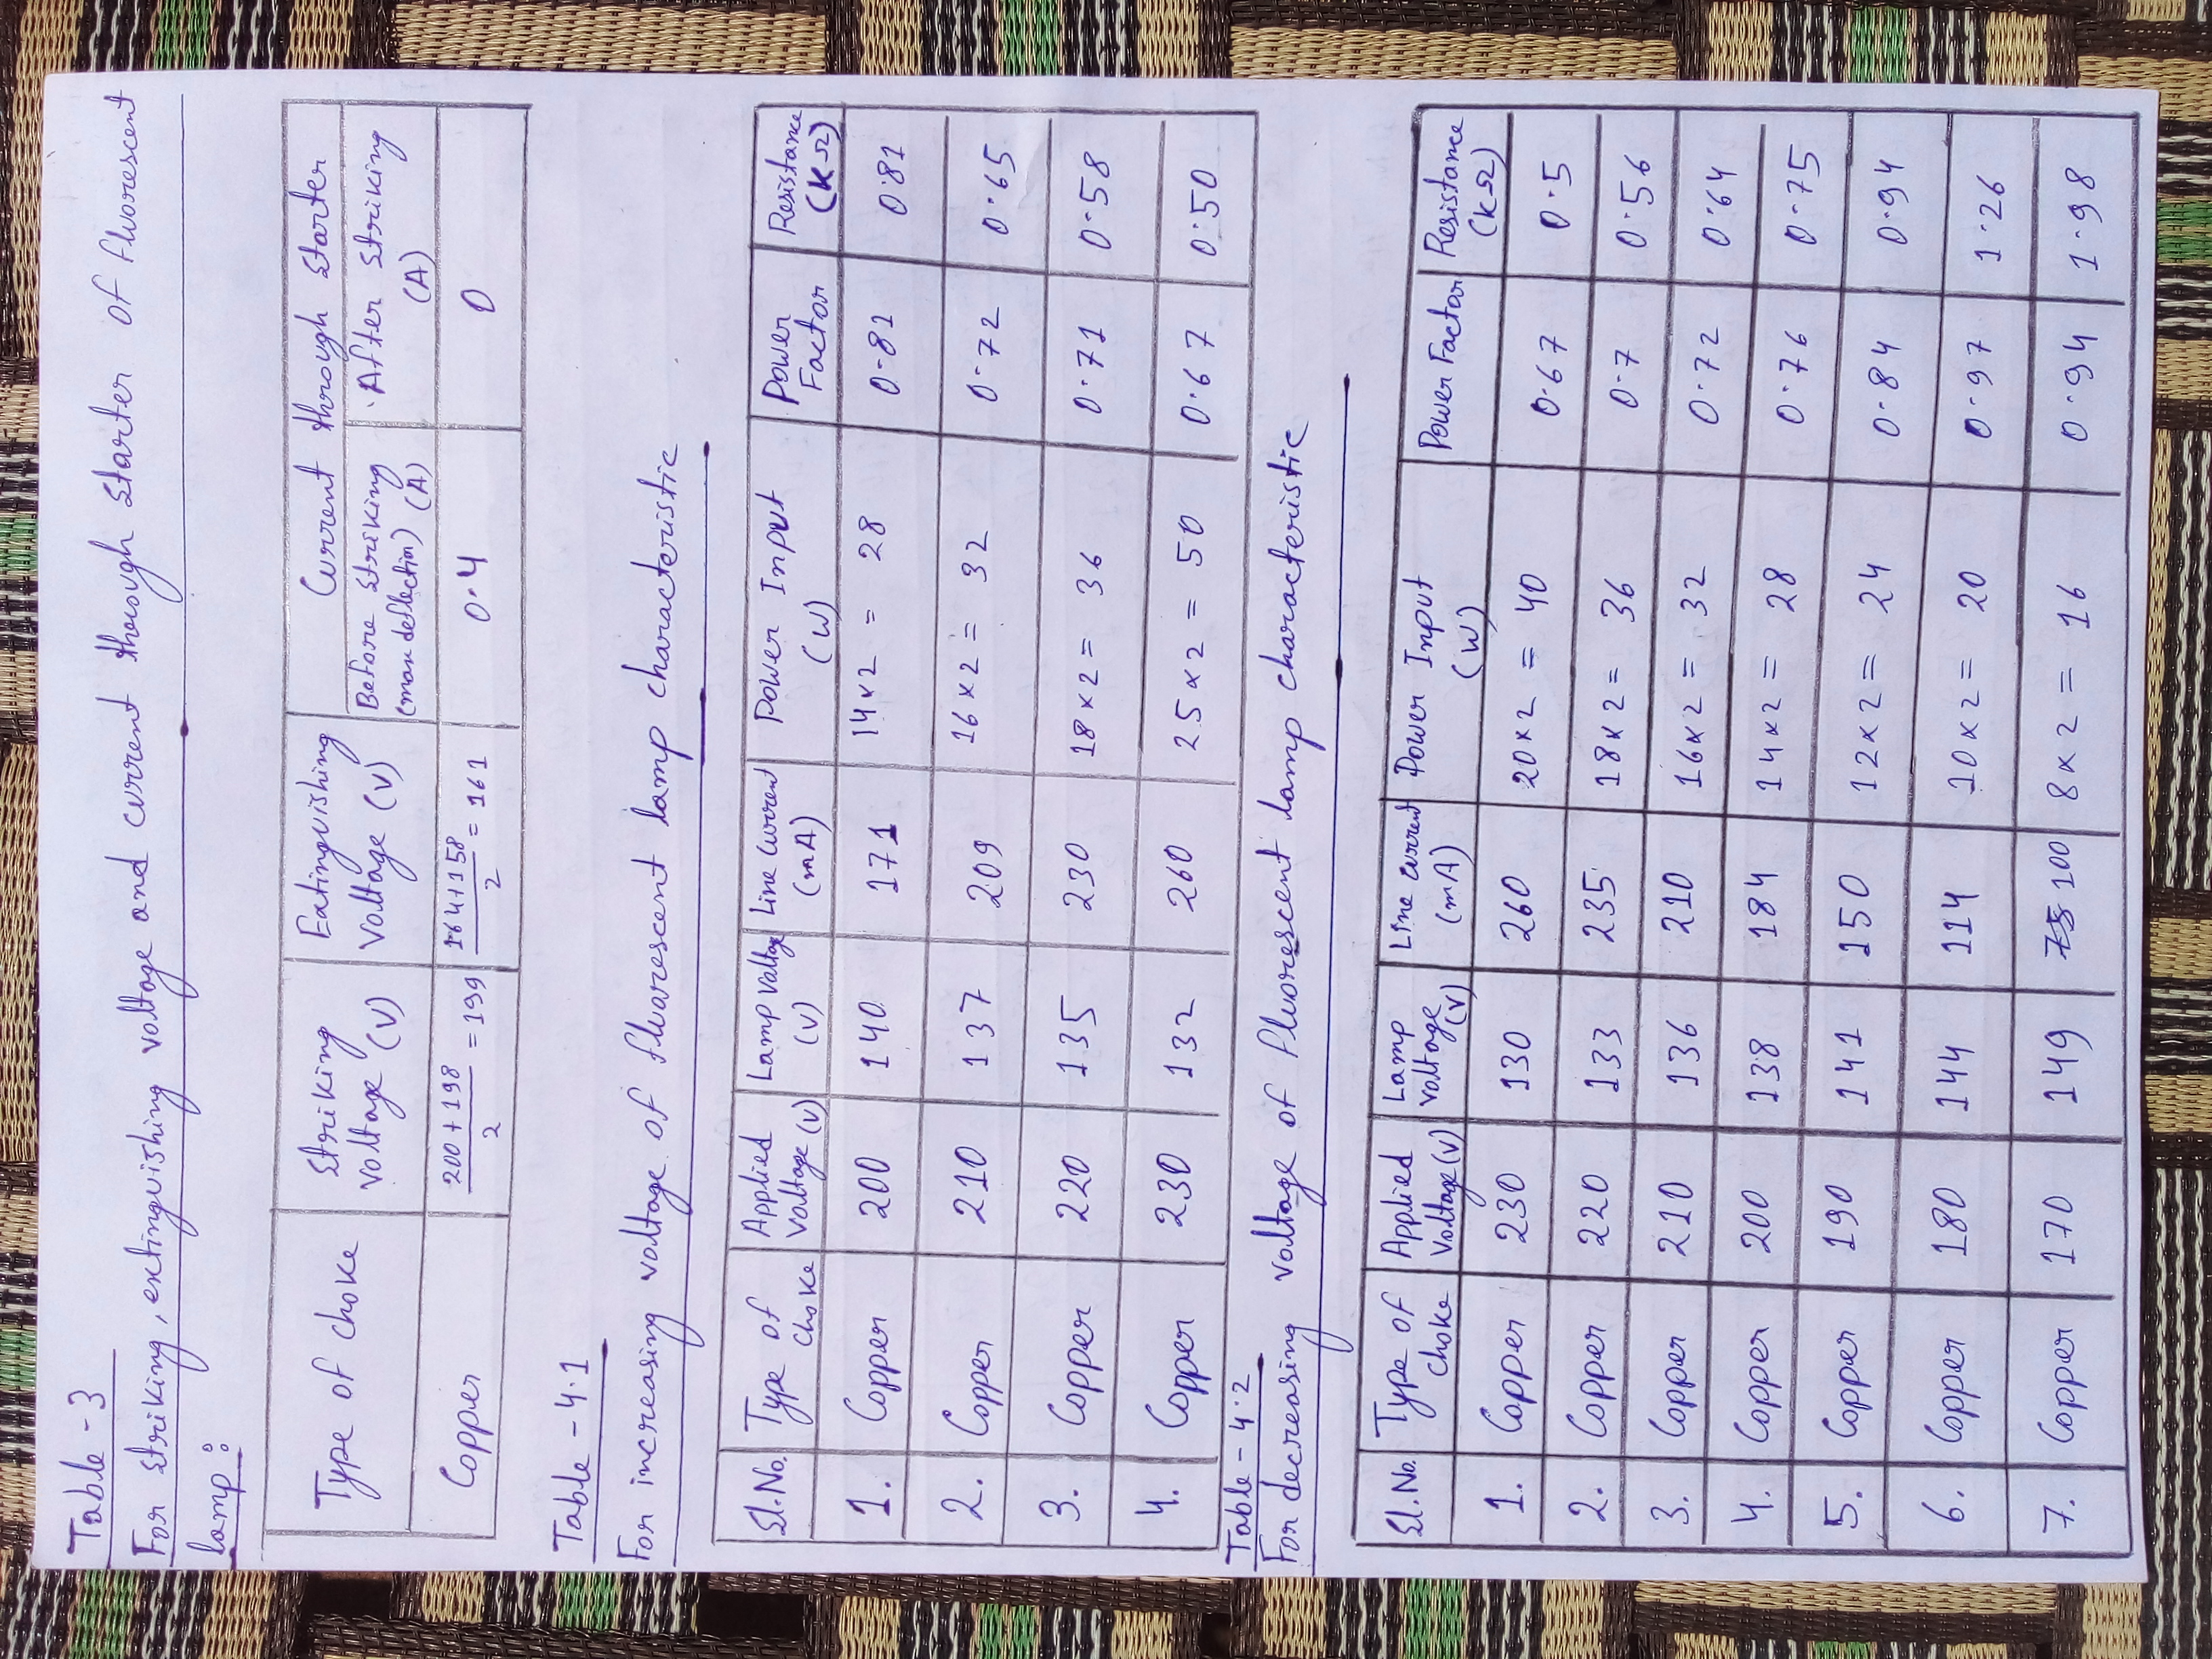 Table - 3
For striking, extinguishing voltage and current through starter of fluorescent
lamp :
Type of choke | Striking voltage (V) | Extinguishing voltage (V) | Current through starter
Before striking (max deflection) (A) | After striking (A)
Copper | 200 + 198 / 2 = 199 | 164 + 158 / 2 = 161 | 0.4 | 0
Table - 4.1
For increasing voltage of fluorescent lamp characteristic
Sl. No. | Type of choke | Applied voltage (V) | Lamp voltage (V) | Line current (mA) | Power Input (W) | Power Factor | Resistance (KΩ)
1. | Copper | 200 | 140 | 171 | 14 x 2 = 28 | 0.81 | 0.81
2. | Copper | 210 | 137 | 209 | 16 x 2 = 32 | 0.72 | 0.65
3. | Copper | 220 | 135 | 230 | 18 x 2 = 36 | 0.71 | 0.58
4. | Copper | 230 | 132 | 260 | 25 x 2 = 50 | 0.67 | 0.50
Table - 4.2
For decreasing voltage of fluorescent lamp characteristic
Sl. No. | Type of choke | Applied voltage (V) | Lamp voltage (V) | Line current (mA) | Power Input (W) | Power Factor | Resistance (KΩ)
1. | Copper | 230 | 130 | 260 | 20 x 2 = 40 | 0.67 | 0.5
2. | Copper | 220 | 133 | 235 | 18 x 2 = 36 | 0.7 | 0.56
3. | Copper | 210 | 136 | 210 | 16 x 2 = 32 | 0.72 | 0.64
4. | Copper | 200 | 138 | 184 | 14 x 2 = 28 | 0.76 | 0.75
5. | Copper | 190 | 141 | 150 | 12 x 2 = 24 | 0.84 | 0.94
6. | Copper | 180 | 144 | 114 | 10 x 2 = 20 | 0.97 | 1.26
7. | Copper | 170 | 149 | 75 100 | 8 x 2 = 16 | 0.94 | 1.98